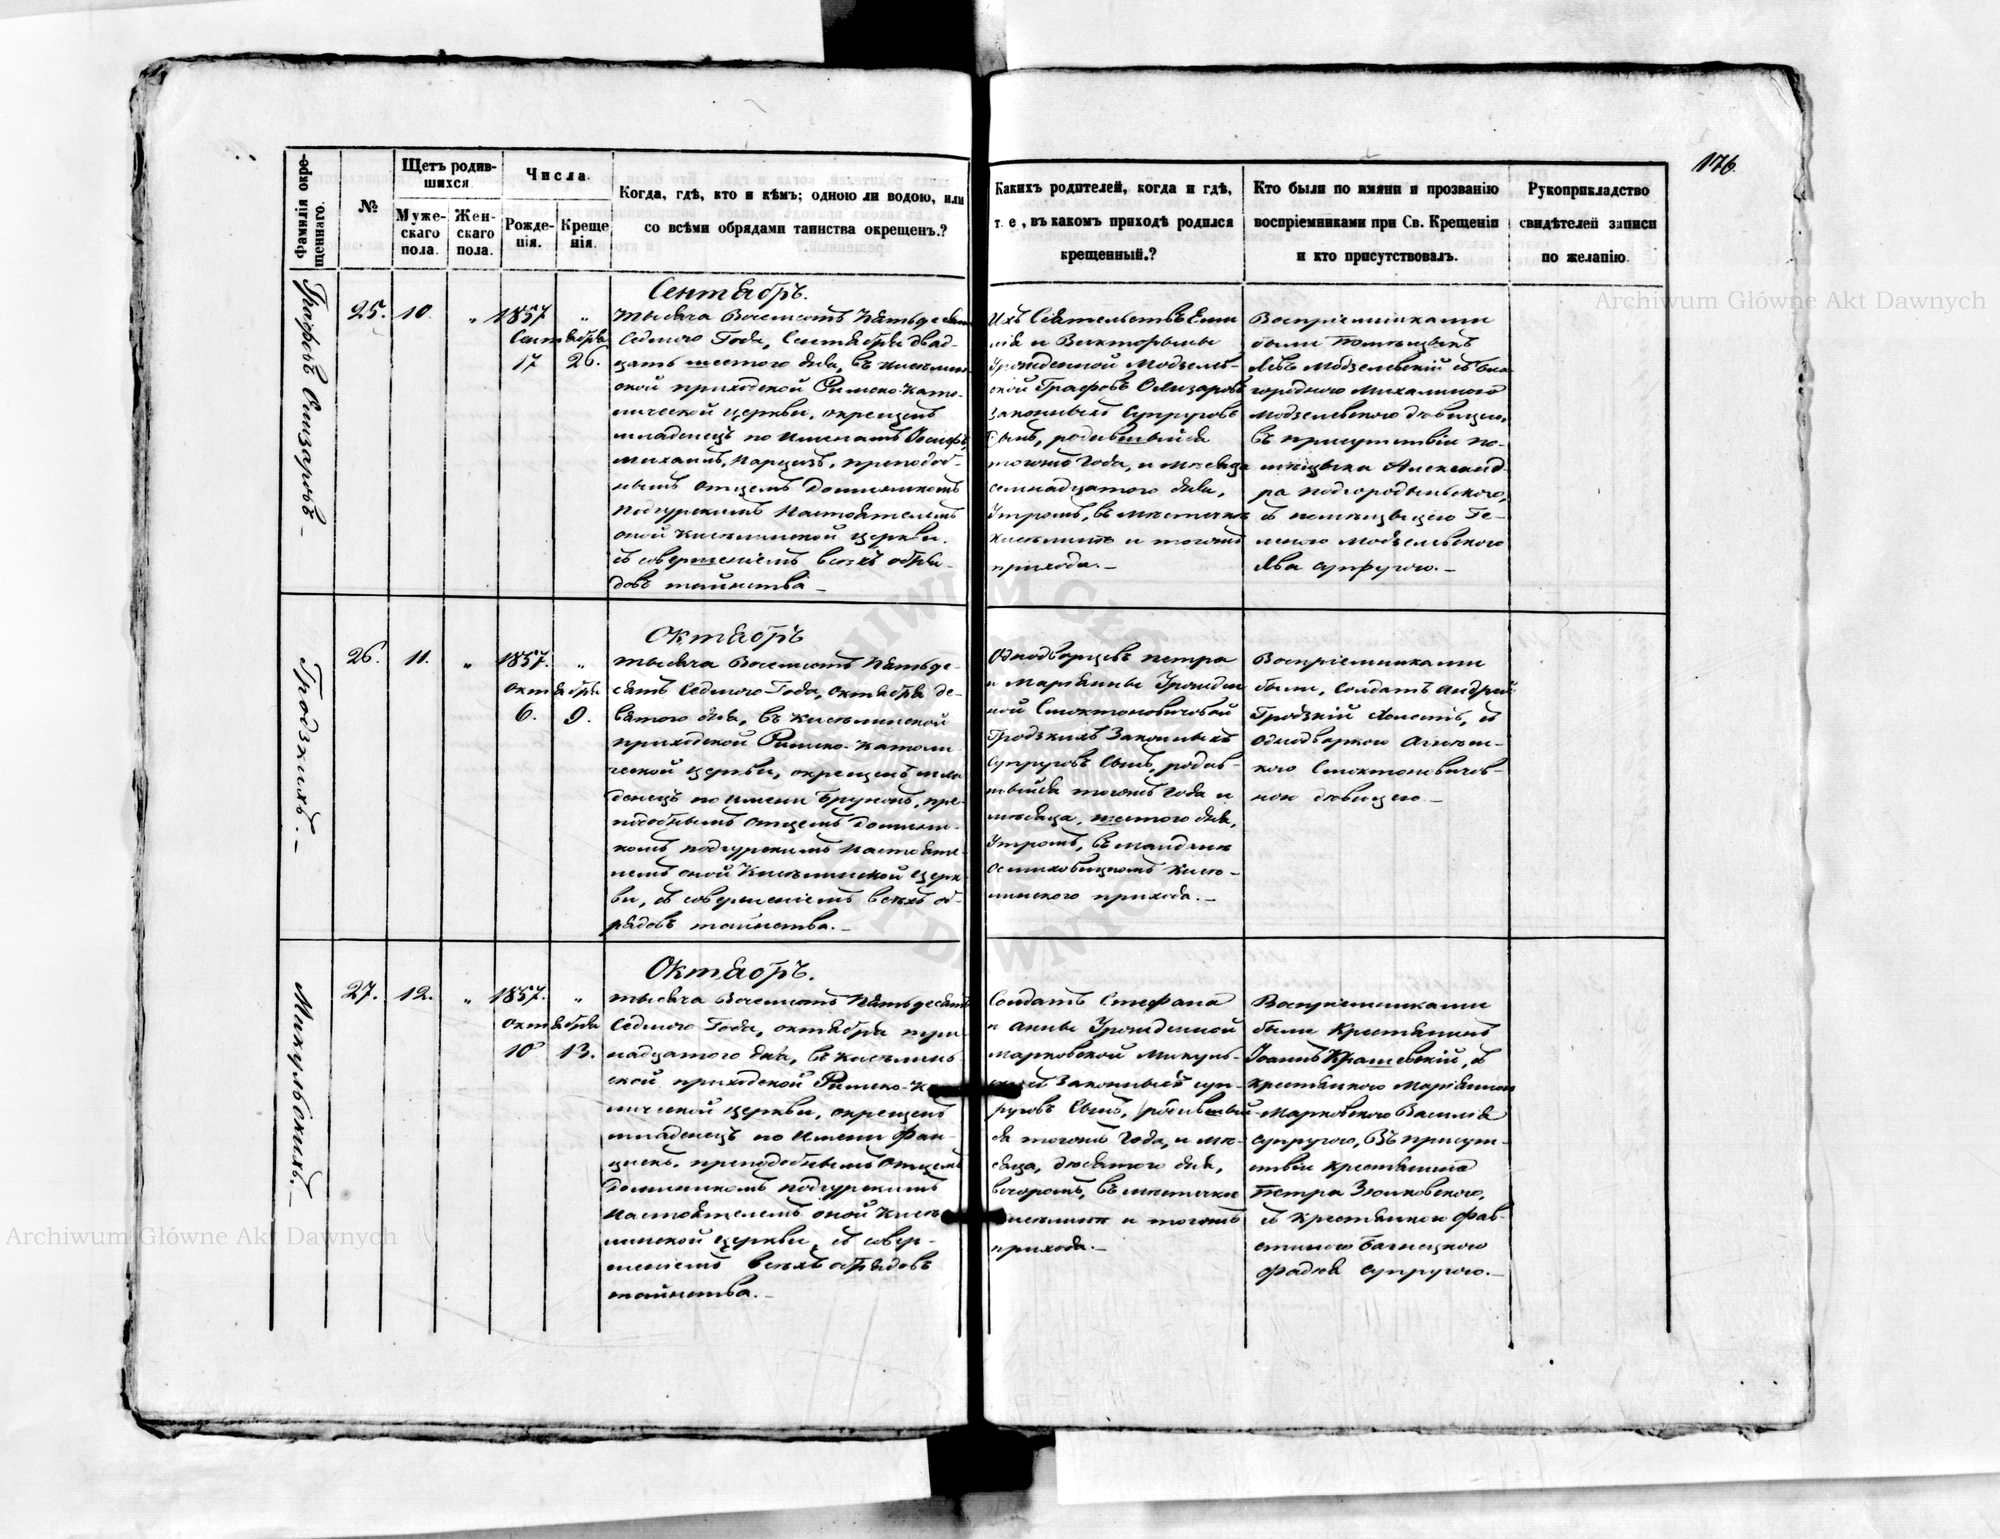 176.
Фамилія окре-
щеннаго.
№
Щетъ родив-
шихся.
Муже-
скаго
пола.
Жен-
скаго
пола.
Числа.
Рожде-
нія.
Креще
нія.
Когда, гдѣ, кто и кѣмъ; одною ли водою, или
со всѣми обрядами таинства окрещенъ.?
Какихъ родителей, когда и гдѣ,
т. е, въ какомъ приходѣ родился
крещенный.?
Кто были по имяни и прозванію
воспріемниками при Св. Крещеніи
и кто присутствовалъ.
Рукоприкладство
свидѣтелей записи
по желанію.
Графовъ Олизаровъ
25.
10.
"
1857
"
Сентября
17
26.
Сентябръ.
Тысяча Восемсотъ Пятьдесятъ
Седмого Года, Сентября двад-
цать шестого дня, въ Киселин-
ской приходской Римско-Като-
лической церкви, окрещенъ
младенецъ по Именамъ Іосифъ,
Михаилъ, Нарцизъ, преподоб-
нымъ Отцемъ Доминикомъ
Подгурскимъ Настоятелемъ
оной Киселинской церкви.
съ совершеніемъ всѣхъ обря-
довъ таинства —
Ихъ Сіятельствъ Еми
лія и Викторыны
Урожденной Модзелев-
ской Графовъ Олизаровъ
законныхъ Супруговъ
Сынъ, родившыйся
тогожъ Года, и мѣсяца
семнадцатого дня,
Утромъ, въ мѣстечкѣ
Киселинѣ и тогожъ
прихода. —
Воспріемниками
были Помѣщыкъ
Левъ Модзелевскій съ бла
городного Михалиного
Модзелевского дѣвицею,
въ присутствіи по-
мѣщыка Александ-
ра Подгородынского,
съ помѣщыцею Ге-
леною Модзелевского
Льва супругою. —
Гродзкихъ. —
26.
11.
"
1857.
"
Октября
6.
9.
Октябръ
Тысяча Восемсотъ Пятьде-
сятъ Седмого Года, Октября де-
вятого дня, въ Киселинской
приходской Римско-Католи-
ческой церкви, окрещенъ мла
денецъ по Имени Брунонъ, пре-
подобнымъ Отцемъ Домини-
комъ Подгурскимъ Настояте-
лемъ оной Киселинской церк-
ви, съ совершеніемъ всѣхъ об-
рядовъ таинства. —
Однодворцевъ Петра
и Маріянны Урожден
ной Смоктоновичовой
Гродзкихъ Законныхъ
Супруговъ Сынъ, родив-
шыйся тогожъ Года и
мѣсяца, шестого дня,
Утромъ, въ Майдани
Киселинского прихода. —
Воспріемниками
были, Солдатъ Андрей
Гродзкій съ
однодворкою
кого Смоктоновичов-
ною дѣвицею —
Микульскихъ. —
27.
12.
"
1857.
"
Октября
10
13.
Октябръ.
Тысяча Восемсотъ Пятьдесятъ
Седмого Года, октября трин
надцатого дня, въ Киселин-
ской приходской Римско-Като
лической церкви, окрещенъ
младенецъ по Имени Фран-
цискъ, преподобнымъ Отцемъ
Доминикомъ Подгурскимъ
Настоятелемъ оной Кисе
линской церкви, съ совер-
шеніемъ всѣхъ обрядовъ
таинства. —
Солдатъ Стефана
и Анны Урожденной
Марковской Микуль-
скихъ Законныхъ суп-
руговъ Сынъ, родившый
ся тогожъ Года, и мѣ-
сяца, десятого дня,
вечеромъ, въ мѣстечкѣ
Киселинѣ и тогожъ
прихода. —
Воспріемниками
были Крестянинъ
Іоаннъ Крашевскій, съ
крестянкого Маріянною
Марковского Василія
супругою, Въ присут-
ствіи крестянина
Петра Зюлковского,
съ Крестянкою Фав-
стиною
Фадея супругою. —
Archiwum Główne Akt Dawnych
Archiwum Główne Akt Dawnych